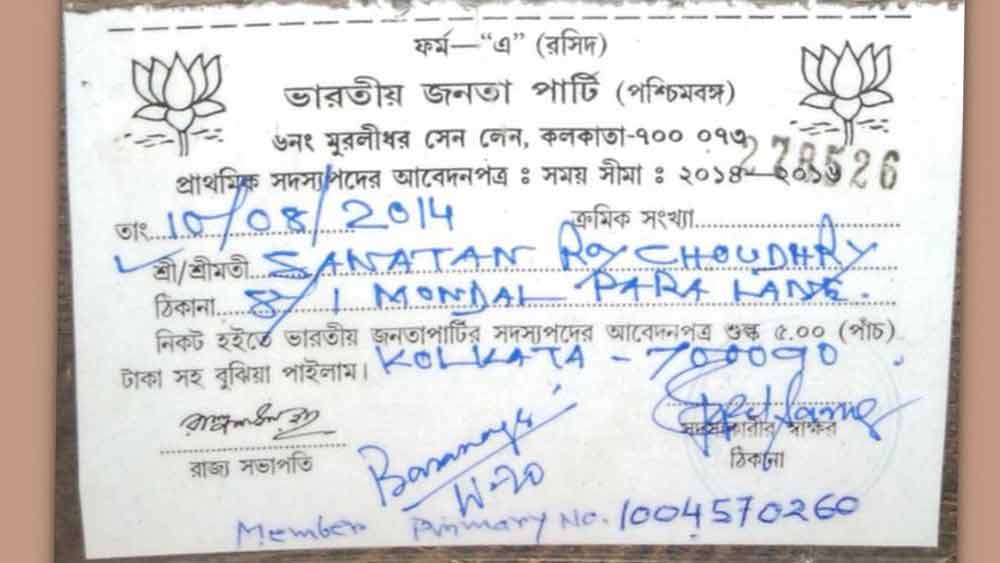 ফর্ম—“এ” (রসিদ)
ভারতীয় জনতা পার্টি (পশ্চিমবঙ্গ)
৬নং মুরলীধর সেন লেন, কলকাতা-৭০০ ০৭৩
278526
প্রাথমিক সদস্যপদের আবেদনপত্র : সময় সীমা : ২০১৪—২০১৬
তাং 10/08/2014 ক্রমিক সংখ্যা
শ্রী/শ্রীমতী SANATAN ROY CHOUDHRY
ঠিকানা 8/1 MONDAL PARA LANE.
নিকট হইতে ভারতীয় জনতাপার্টির সদস্যপদের আবেদনপত্র শুল্ক ৫.০০ (পাঁচ)
টাকা সহ বুঝিয়া পাইলাম। KOLKATA - 700090
রাজ্য সভাপতি
ঠিকানা
W-20
Member Primary No. 1004570260